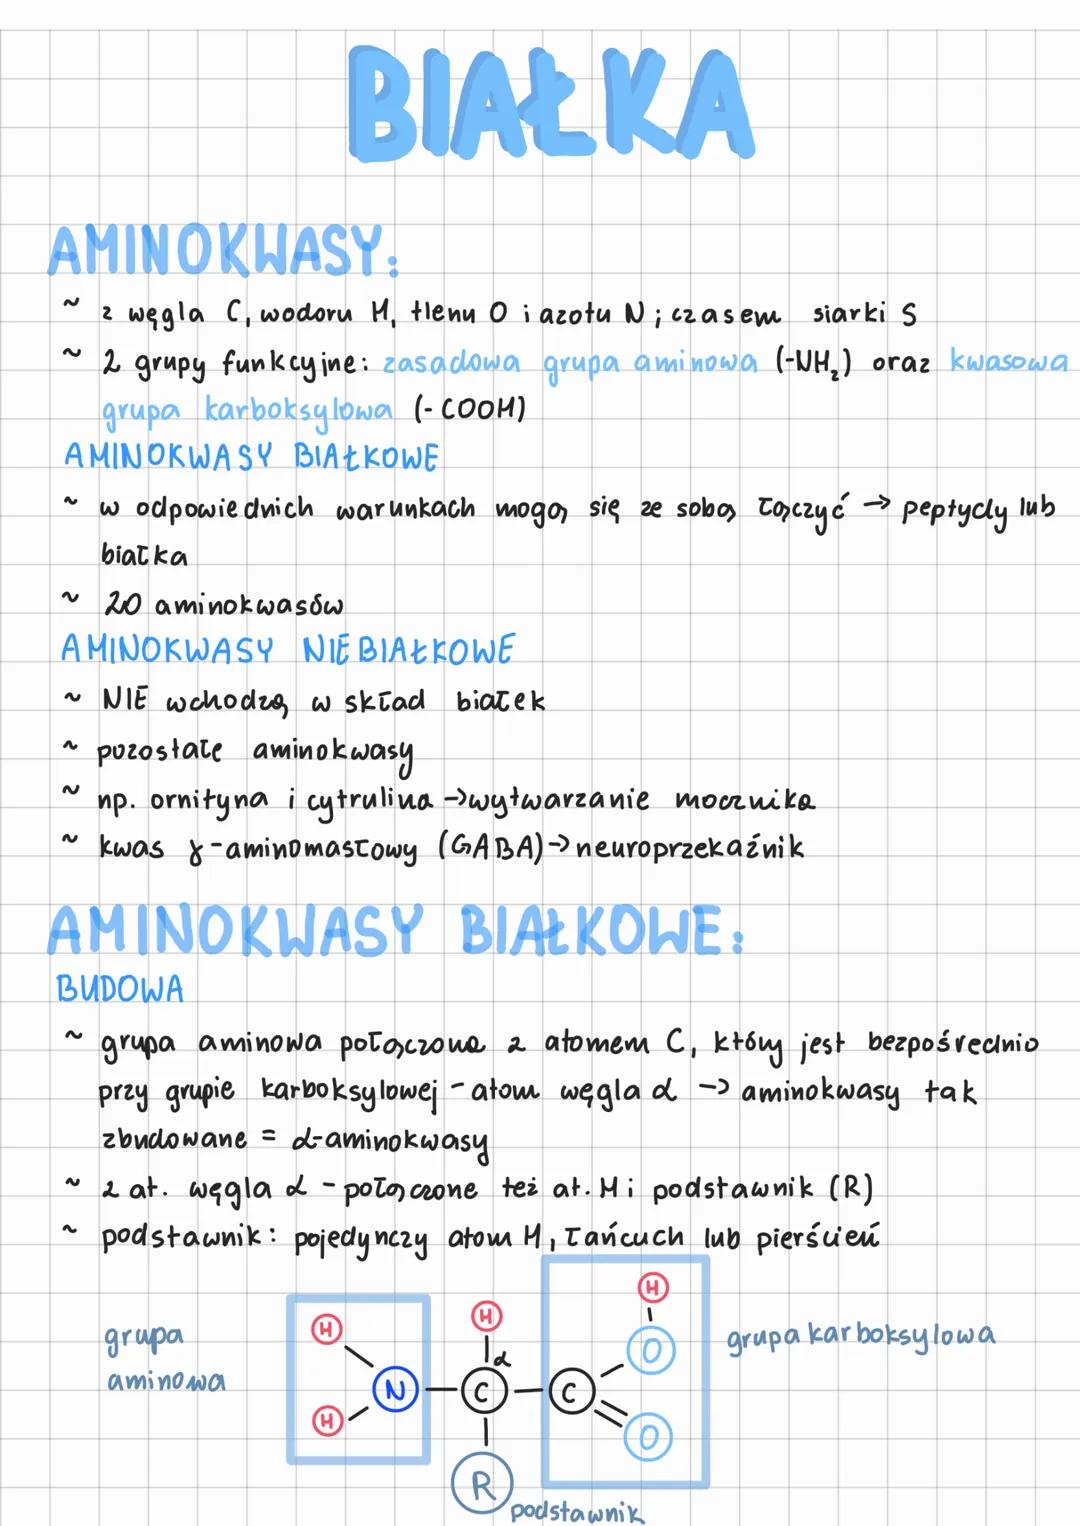 BIAŁKA
AMINOKWASY:
~ z węgla C, wodoru H, tlenu O i azotu N; czasem siarki S
~ 2 grupy funkcyjne: zasadowa grupa aminowa (-NH₂) oraz kwasowa
grupa karboksylowa (-COOH)
AMINOKWASY BIAŁKOWE
~ w odpowiednich warunkach mogą się ze sobą łączyć → peptydy lub
białka
~ 20 aminokwasów
AMINOKWASY NIEBIAŁKOWE
~ NIE wchodzą w skład białek
~ pozostałe aminokwasy
~ np. ornityna i cytrulina → wytwarzanie mocznika
~ kwas γ-aminomasłowy (GABA) → neuroprzekaźnik
AMINOKWASY BIAŁKOWE:
BUDOWA
~ grupa aminowa połączona z atomem C, który jest bezpośrednio
przy grupie karboksylowej - atom węgla α → aminokwasy tak
zbudowane = α-aminokwasy
~ z at. węgla α - połączone też at. H i podstawnik (R)
~ podstawnik: pojedynczy atom H, łańcuch lub pierścień
H
H H
grupa O grupa karboksylowa
α
aminowa N C C
H O
R
podstawnik